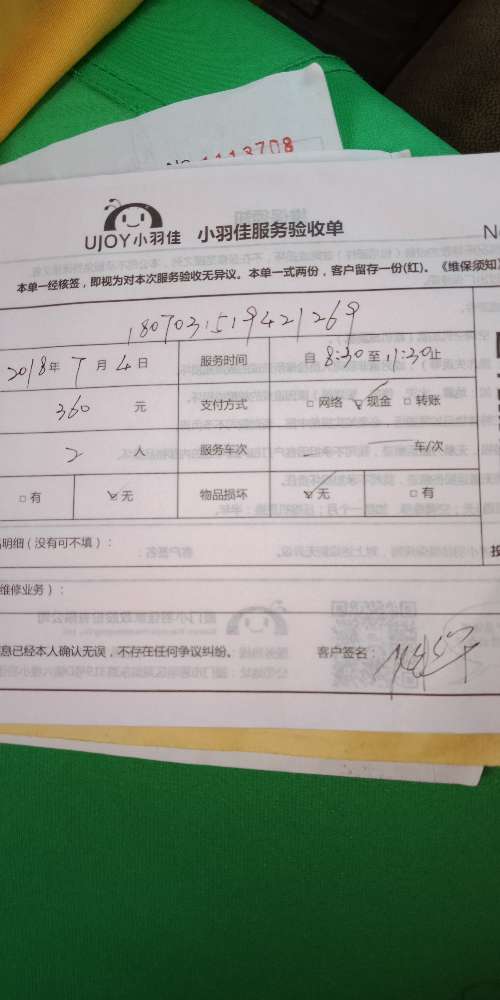 1113708
UJOY小羽佳 小羽佳服务验收单
本单一经核签，即视为对本次服务验收无异议。本单一式两份，客户留存一份(红)。《维保须知》
1807031519421269
2018年 7月 4日 服务时间 自 8:30 至 11:30 止
360 元 支付方式 □网络 ☑现金 □转账
2 人 服务车次 车/次
□有 ☑无 物品损坏 ☑无 □有
明细（没有可不填）：
维修业务）：
息已经本人确认无误，不存在任何争议纠纷。 客户签名：